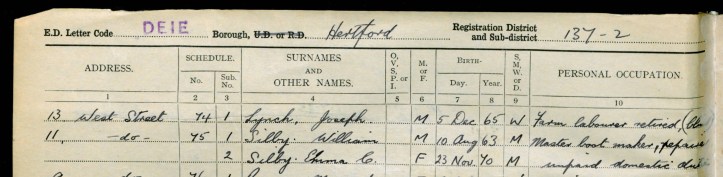 E.D. Letter Code DEIE Borough, U.D. or R.D. Hertford Registration District and Sub-district 137-2
ADDRESS. SCHEDULE. SURNAMES AND OTHER NAMES. O, V, S, P or I. M. or F. BIRTH- S, M, W, or D. PERSONAL OCCUPATION.
No. Sub. No. Day. Year.
1 2 3 4 5 6 7 8 9 10
13 West Street 74 1 Lynch, Joseph M 5 Dec 65 W Farm labourer retired,
11, -do- 75 1 Silby. William M 10 Aug 63 M Master boot maker,
2 Silby. Emma C. F 23 Nov 70 M unpaid domestic